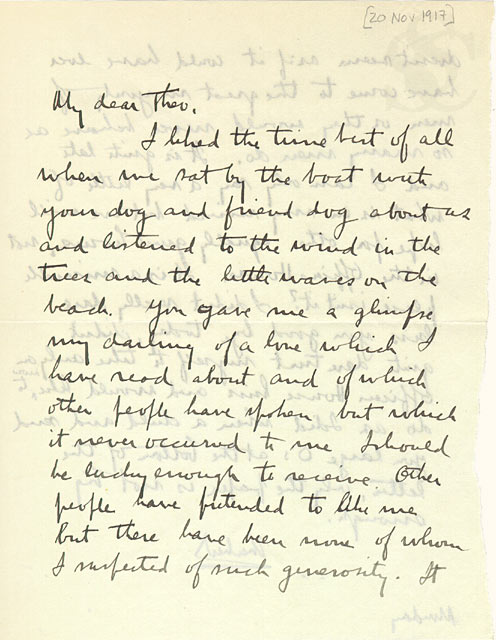 [20 Nov 1917]
My dear Theo,
I liked the time best of all
when we sat by the boat with
your dog and friend dog about us
and listened to the wind in the
trees and the little waves on the
beach. You gave me a glimpse
my darling of a love which I
have read about and of which
other people have spoken but which
it never occurred to me I should
be lucky enough to receive. Other
people have pretended to like me
but there have been none of whom
I suspected of such generosity. It